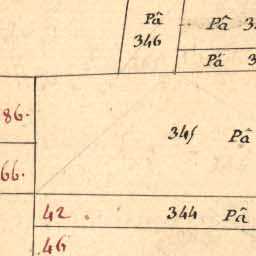 Pâ
346
Pâ 3
Pâ 3
86.
345 Pâ
66.
42. 344 Pâ
46